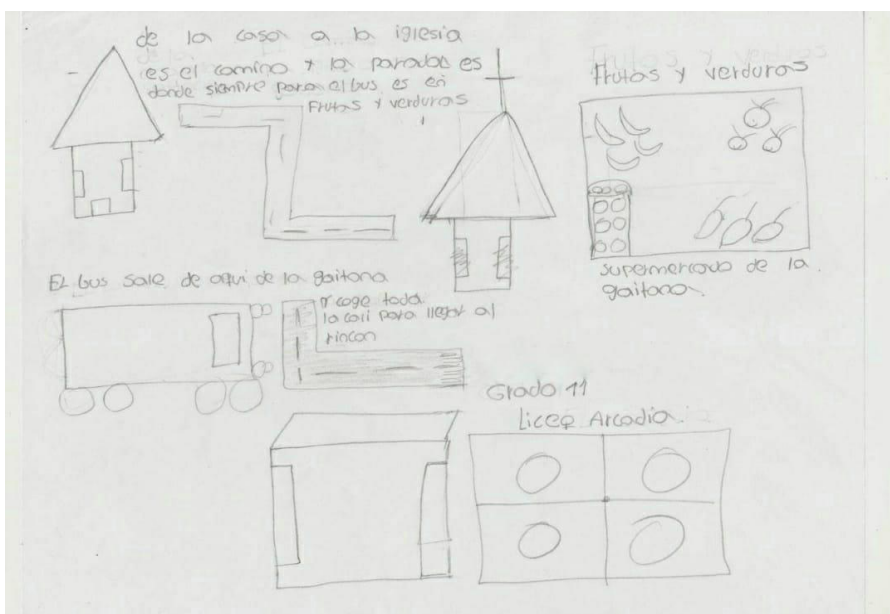 de la casa a la iglesia
es el camino y la paradas es
donde siempre para el bus es en
Frutas y verduras
Frutas y verduras
supermercado de la
gaitana.
El bus sale de aqui de la gaitana
y coge toda
la cali para llegar al
rincon
Grado 11
Liceo Arcadia.